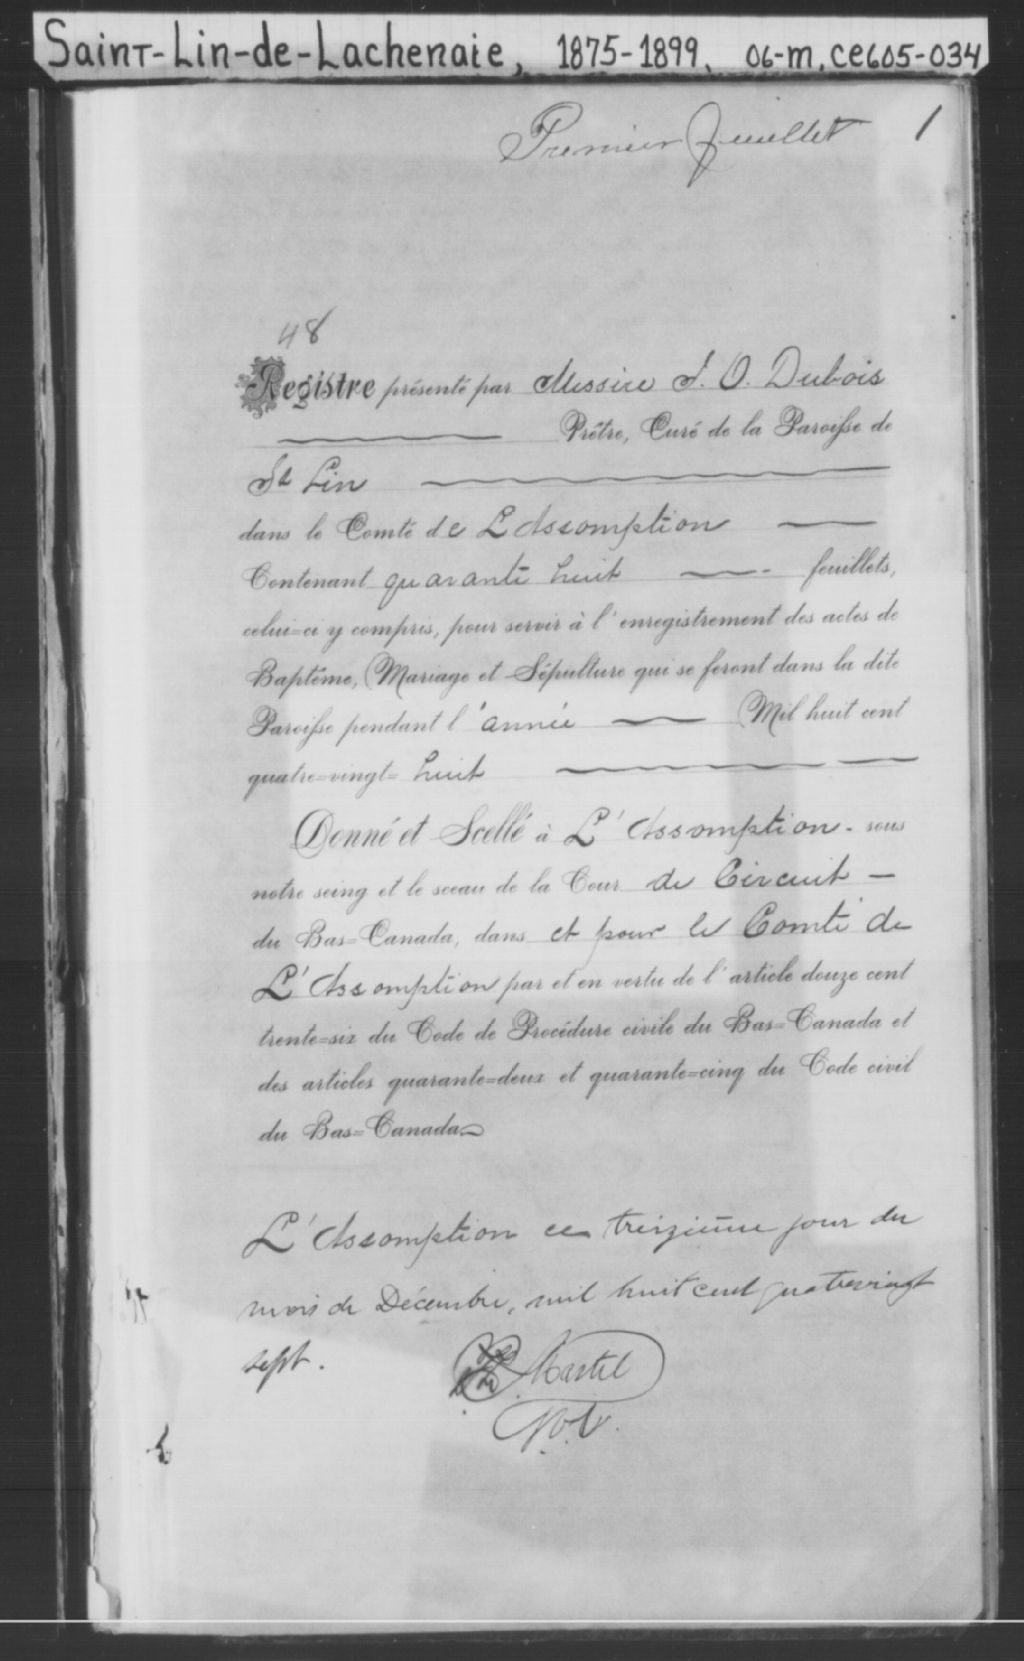 Saint-Lin-de-Lachenaie, 1875-1899, 06-M, CE605-034
Premier feuillet 1
48
Registre présenté par Messire J. O. Dubois
Prêtre, Curé de la Paroisse de
St Lin
dans le Comté de L'Assomption
Contenant quarante huit feuillets,
celui=ci y compris, pour servir à l'enregistrement des actes de
Baptême, Mariage et Sépulture qui se feront dans la dite
Paroisse pendant l'année Mil huit cent
quatre=vingt= huit
Donné et Scellé à L'Assomption - sous
notre seing et le sceau de la Cour de Circuit -
du Bas=Canada, dans et pour le Comté de
L'Assomption par et en vertu de l'article douze cent
trente=six du Code de Procédure civile du Bas=Canada et
des articles quarante=deux et quarante=cinq du Code civil
du Bas=Canada
L'Assomption ce treizième jour du
mois de Décembre, mil huit cent quatrevingt
sept.
Martel